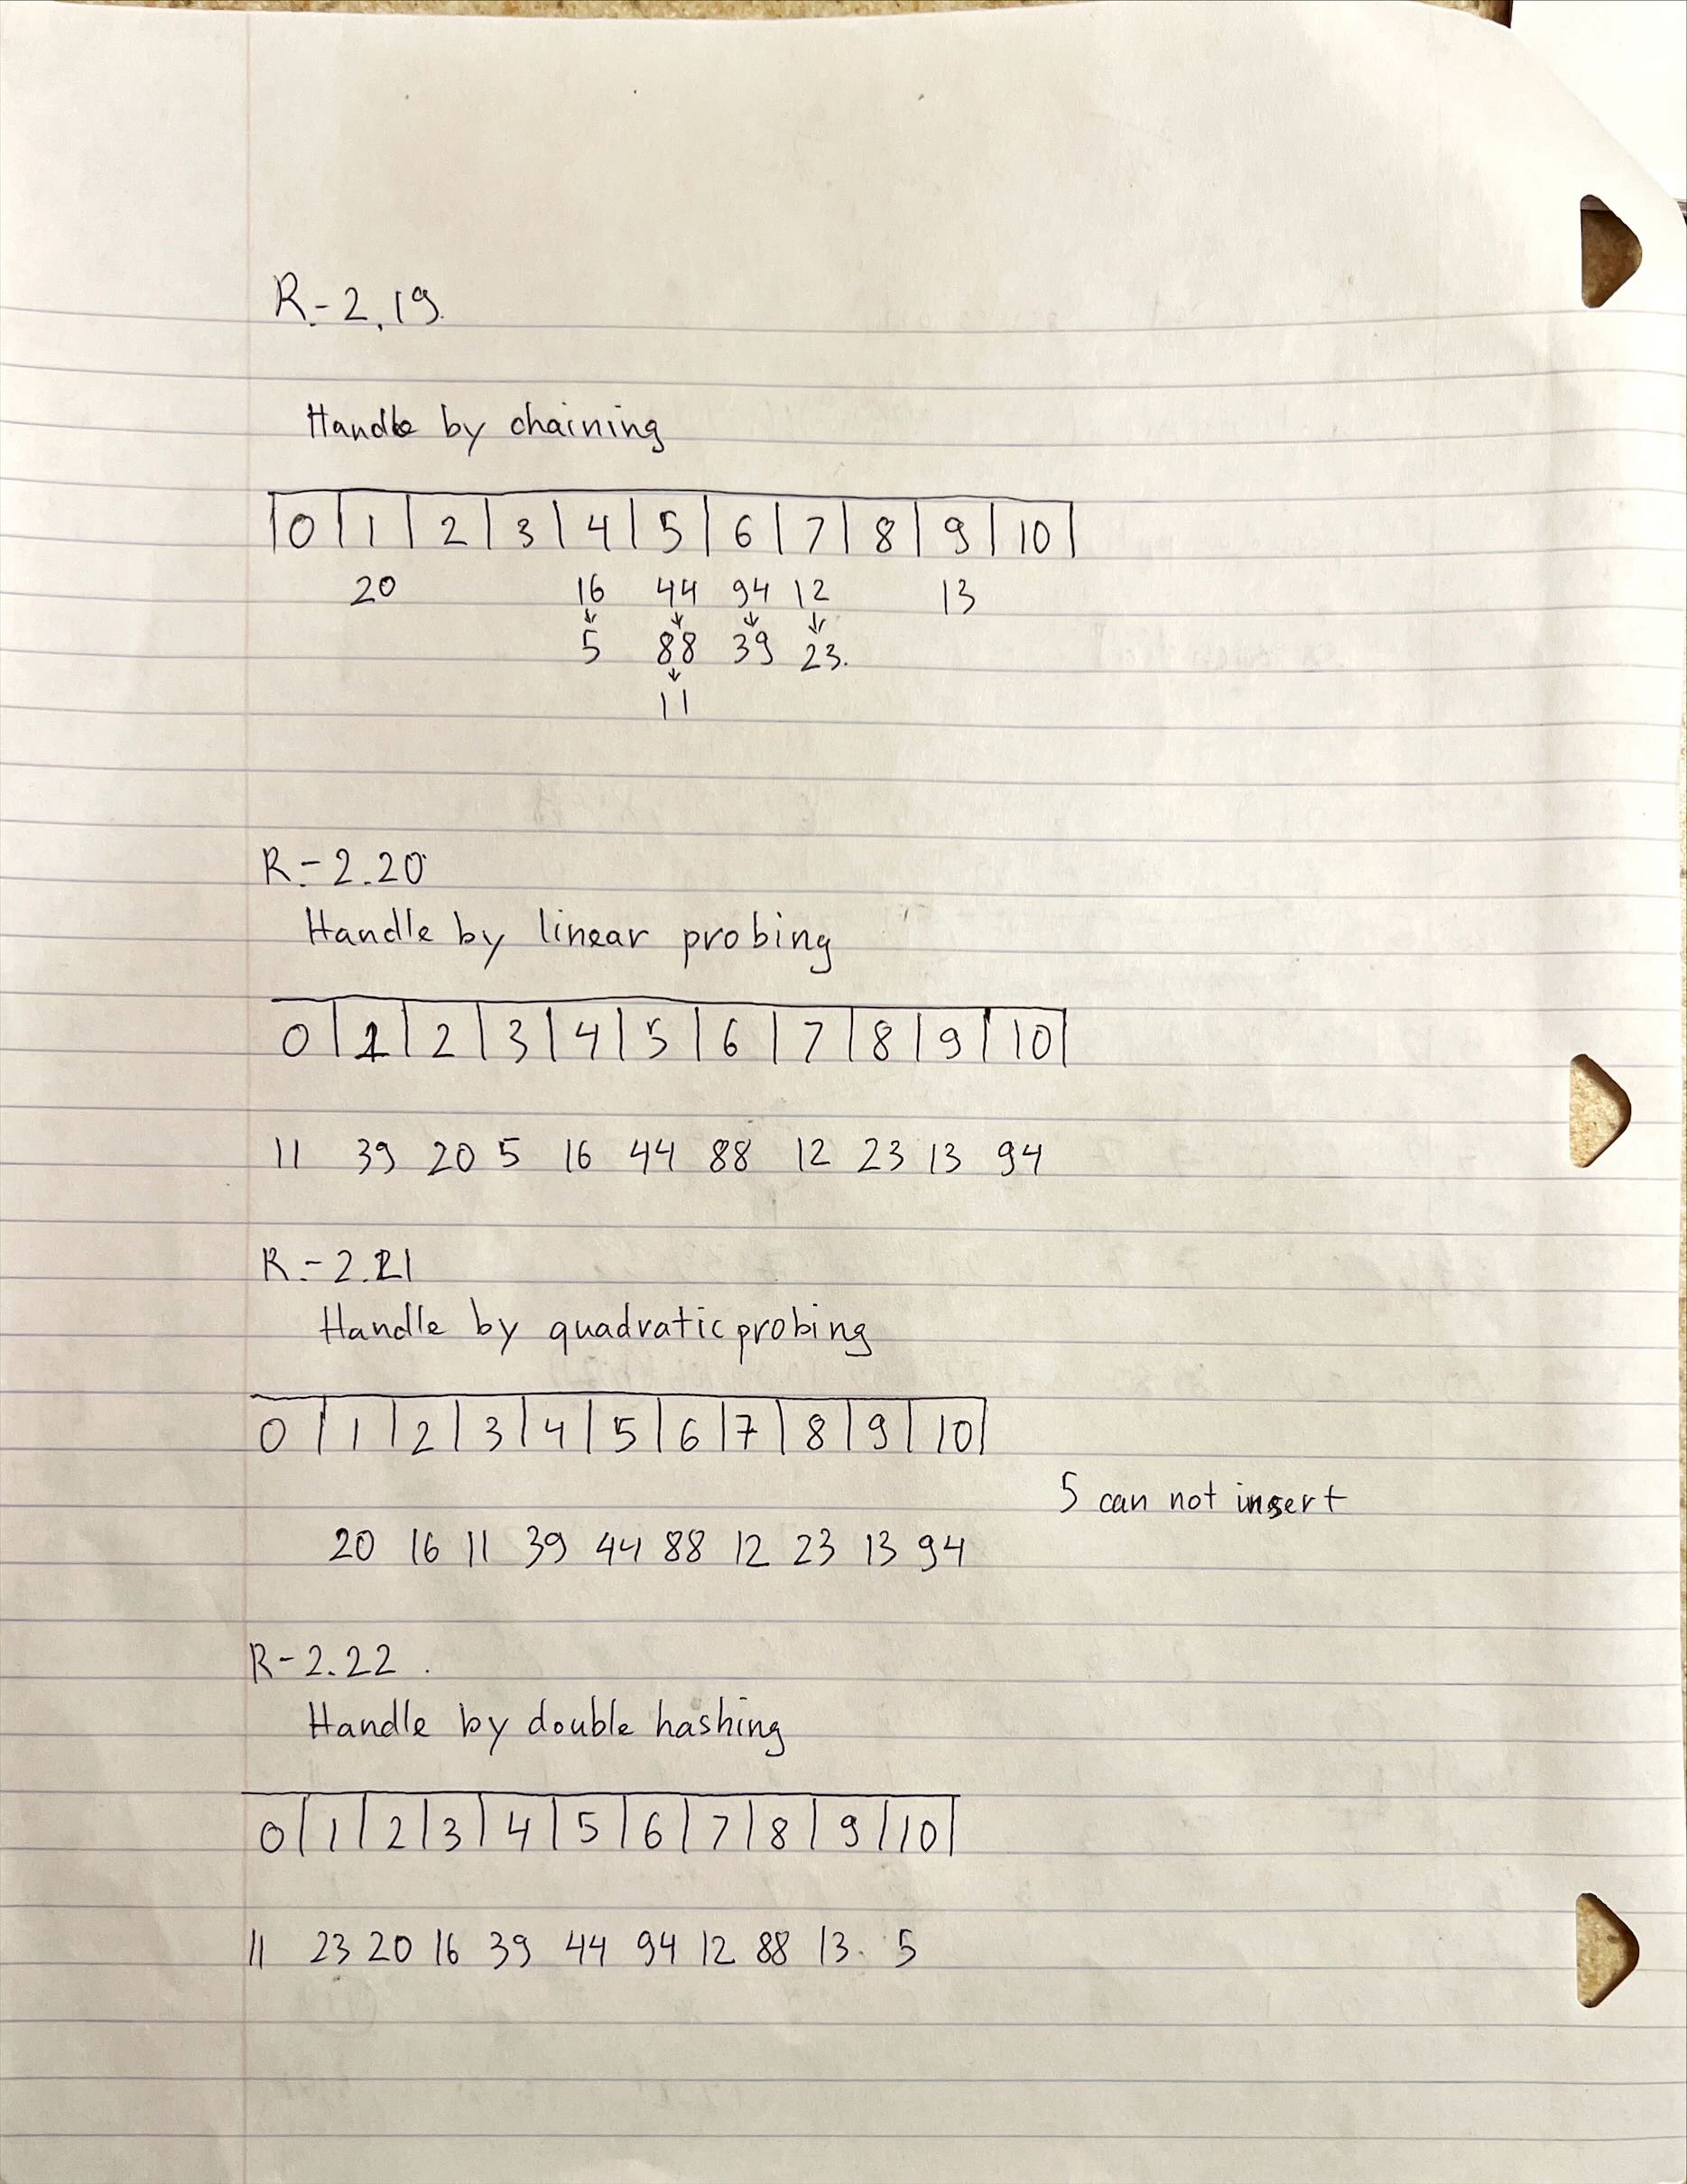 R.-2.19.
Handle by chaining
0 1 2 3 4 5 6 7 8 9 10
20 16 44 94 12 13
↓ ↓ ↓ ↓
5 88 39 23.
↓
11
R.-2.20
Handle by linear probing
0 1 2 3 4 5 6 7 8 9 10
11 39 20 5 16 44 88 12 23 13 94
R.-2.21
Handle by quadratic probing
0 1 2 3 4 5 6 7 8 9 10
5 can not insert
20 16 11 39 44 88 12 23 13 94
R-2.22.
Handle by double hashing
0 1 2 3 4 5 6 7 8 9 10
11 23 20 16 39 44 94 12 88 13. 5